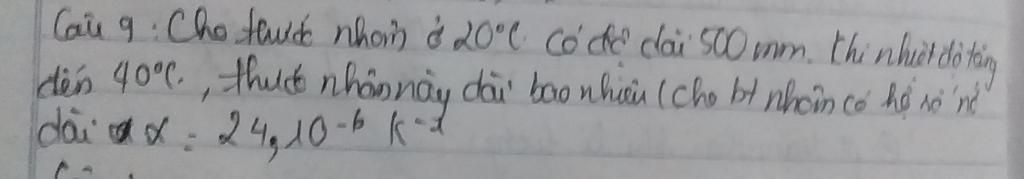 Câu 9 : Cho thước nhôm ở 20°C có độ dài 500 mm. Khi nhiệt độ tăng
đến 40°C, thước nhôm này dài bao nhiêu (cho bt nhôm có hệ số nở
dài α = 24,10^-6 K^-1